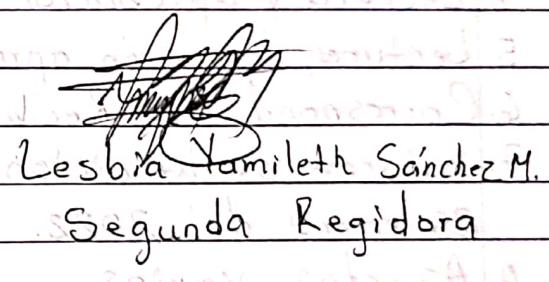 Lesbia Yamileth Sánchez M.
Segunda Regidora